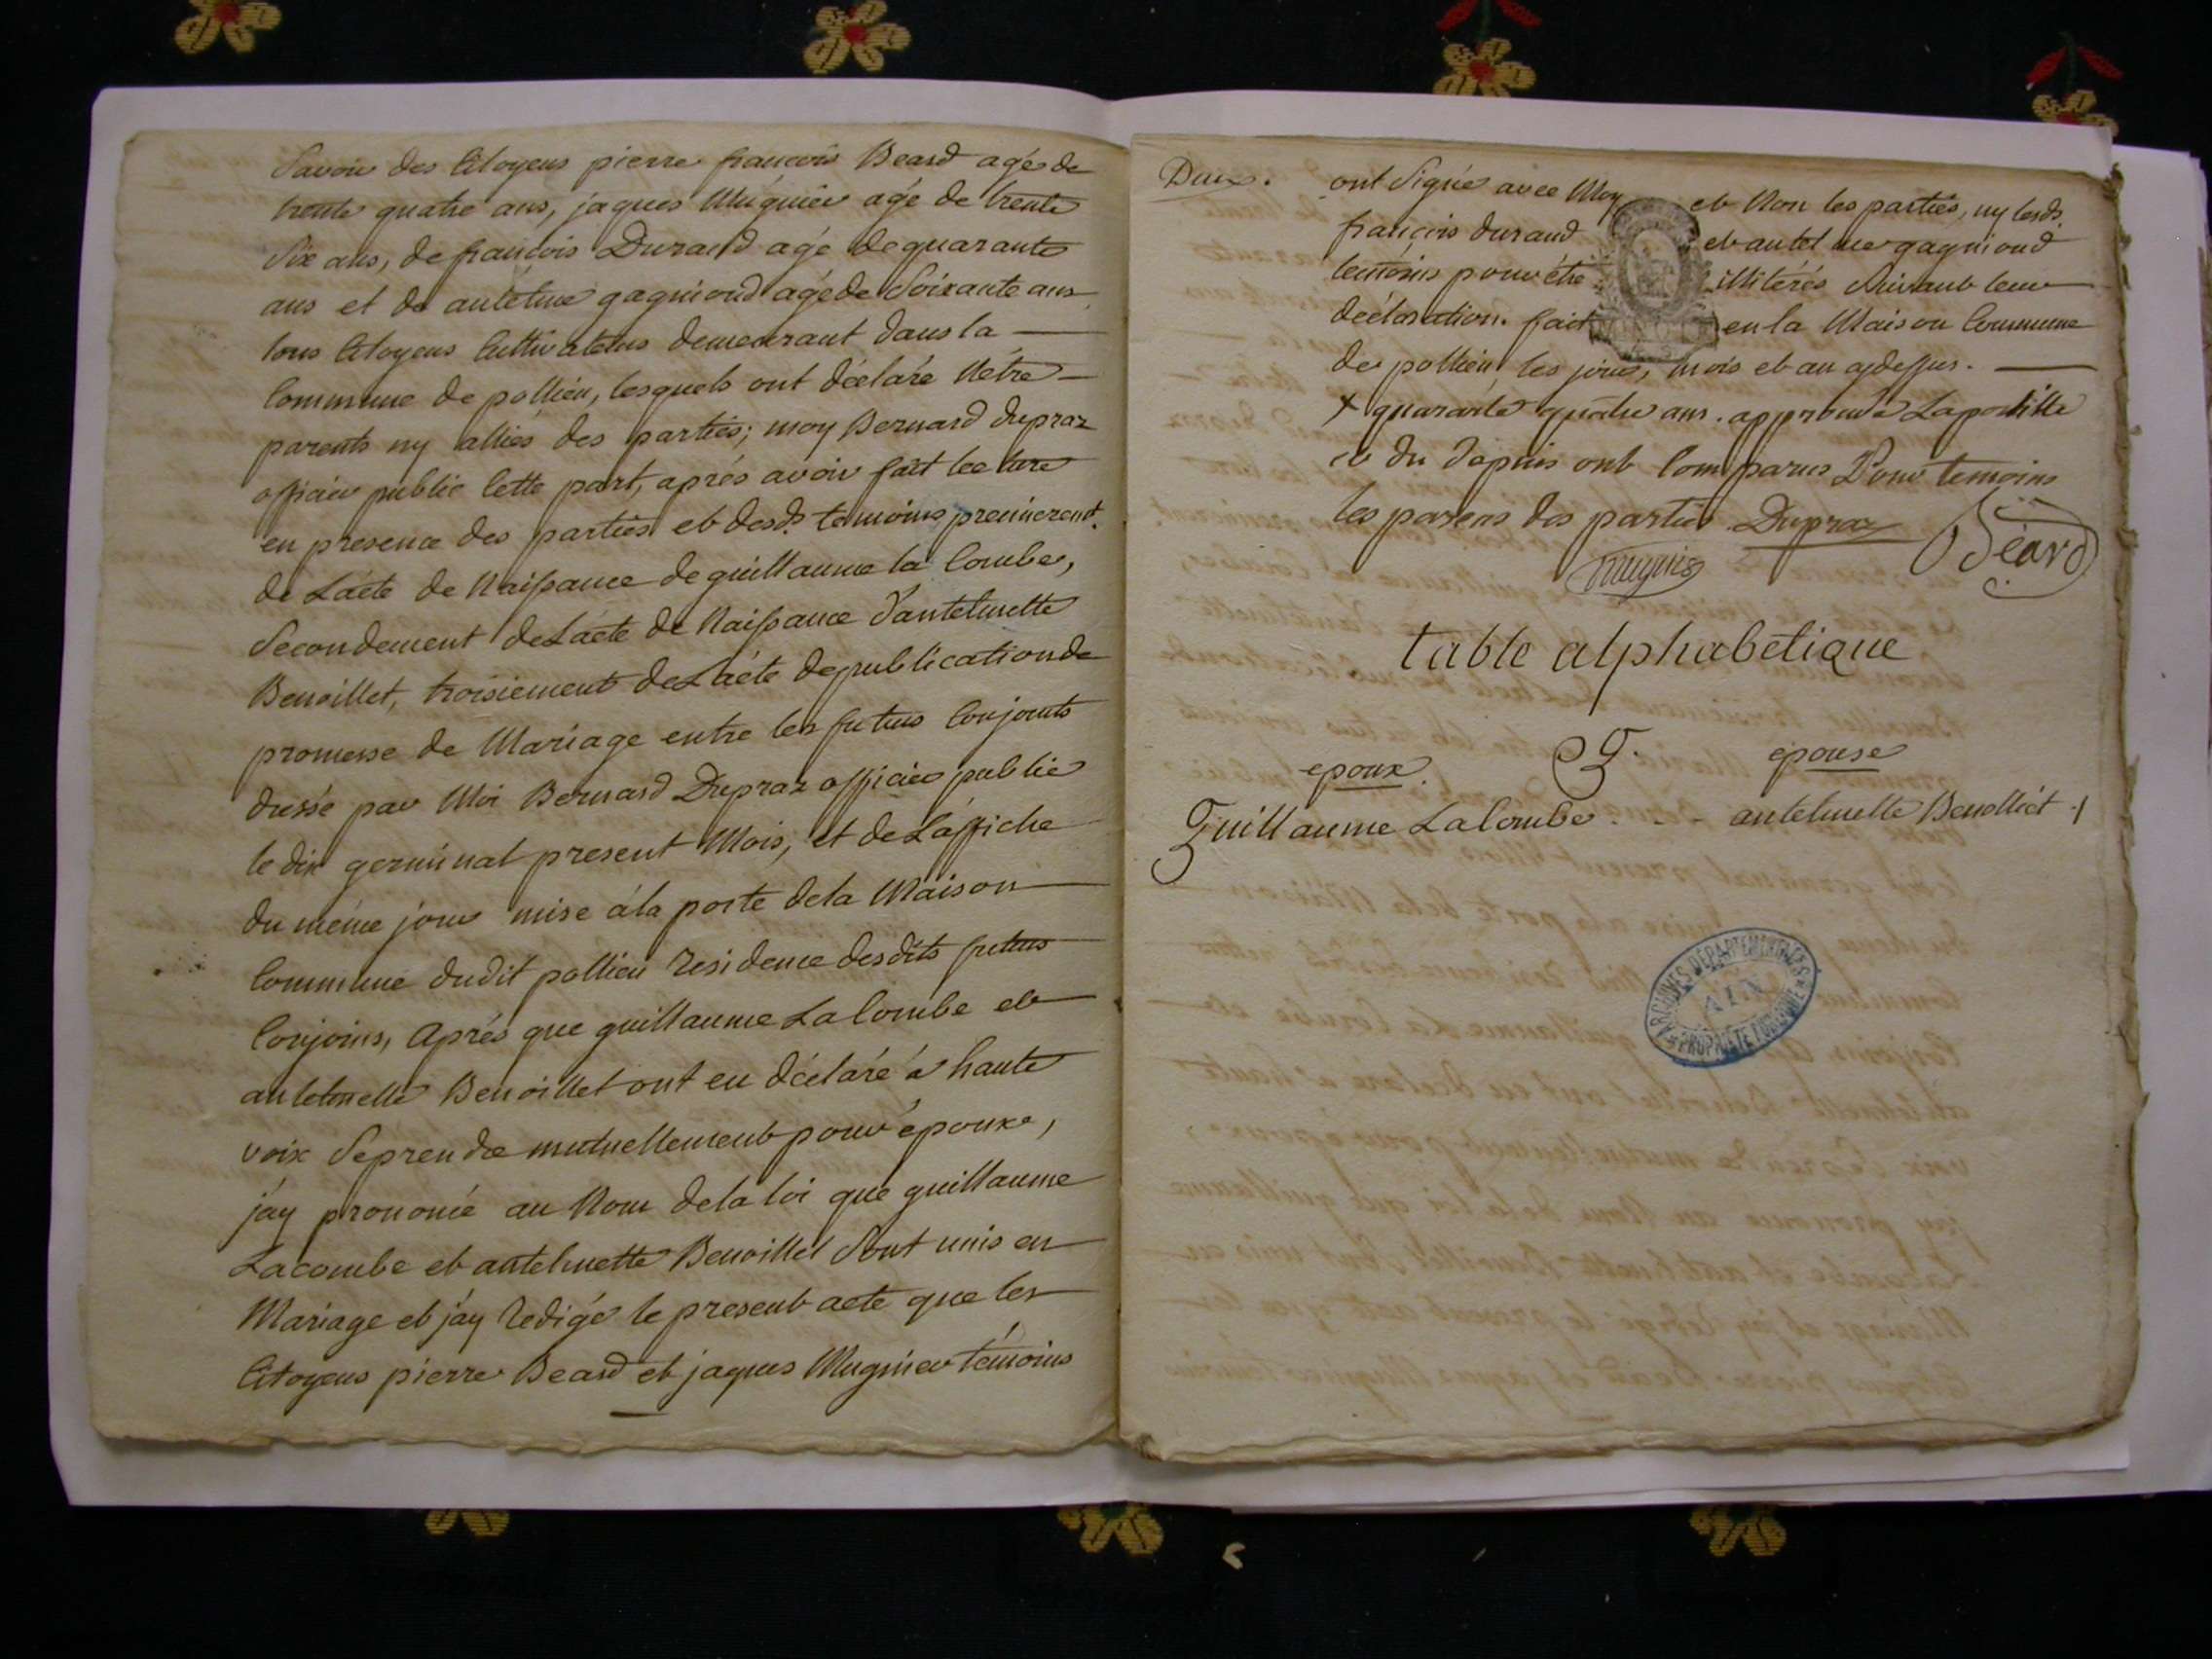 Savoir des Citoyens pierre francois Beard agé de
trente quatre ans, jaques Mugnier agé de trente
Six ans, de francois Durand agé de quarante
ans et de antelme gagniond agé de Soixante ans
tous Citoyens Cultivateurs demeurant dans la
Commune de pollieu, lesquels ont déclaré Nétre
parents ny alliés des parties; moy Bernard dupraz
officier public Cette part, aprés avoir fait lecture
en presence des parties et desds. temoins premierent.
de Lácte de Naissance de guillaume la Combe,
Secondement de Lácte de Naissance d'antelmette
Benoillet, troisiement de Lácte de publication de
promesse de Mariage entre les futurs Conjoints
dressé par Moi Bernard Dupraz officier public
le dix germinal present Mois, et de Láffiche
du méme jour mise á la porte de la Maison
Commune dudit pollieu Residence desdits futurs
Conjoins, Aprés que guillaume La Combe et
antelmette Benoillet ont eu déclaré a haute
voix Se prendre mutuellement pour époux,
j'ay prononcé au Nom de la loi que guillaume
Lacombe et antelmette Benoillet Sont unis en
Mariage et j'ay Redigé le present acte que les
Citoyens pierre Beard et jaques Mugnier témoins
Deux.
ont Signé avec Moy et Non les parties, ny lesds.
francois durand et antelme gagniond
temoins pour étre illiterés Suivant leur
déclaration. fait en la Maison Commune
de pollieu les jour, mois et an cydessus.
x quarante quatre ans. approuvé La postille
et du depuis ont Comparus Pour temoins
les parens des parties Dupraz Béard
mugnier
table alphabetique
G.
epoux. épouse
Guillaume Lacombe . . - antelmette Benolliet
ARCHIVES DÉPARTEMENTALES
AIN
PROPRIÉTÉ PUBLIQUE